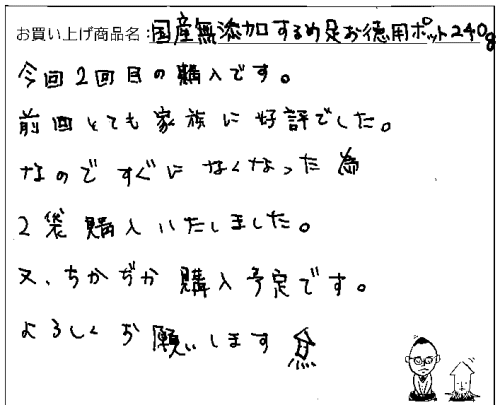 お買い上げ商品名：国産無添加するめ足お徳用ポット240g
今回2回目の購入です。
前回とても家族に好評でした。
なのですぐになくなった為
2袋購入いたしました。
又、ちかぢか購入予定です。
よろしくお願いします